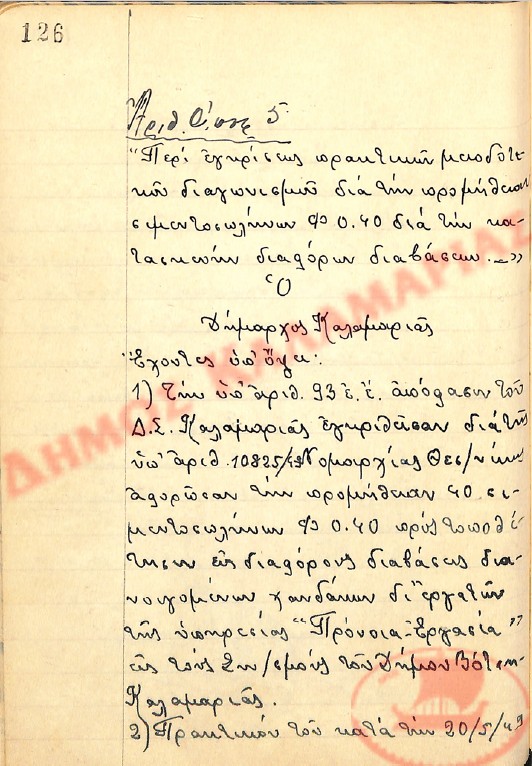 126
Ἀριθ. Ἀποφ 5
"Περὶ ἐγκρίσεως πρακτικοῦ μειοδοτι-
κοῦ διαγωνισμοῦ διὰ τὴν προμήθειαν
σιμεντοσωλήνων Φ 0.40 διὰ τὴν κα-
τασκευὴν διαφόρων διαβάσεων._"
Ὁ
Δήμαρχος Καλαμαριᾶς
Ἔχοντες ὑπ' ὄψει:
1) Τὴν ὑπ' ἀριθ. 93 ἐ.ἔ. ἀπόφασιν τοῦ
Δ.Σ. Καλαμαριᾶς ἐγκριθεῖσαν διὰ τῆς
ὑπ' ἀριθ. 10825/49 Νομαρχίας Θεσ/νίκης
ἀφορῶσαν τὴν προμήθειαν 40 σι-
μεντοσωλήνων Φ 0.40 πρὸς τοποθέ-
τησιν εἰς διαφόρους διαβάσεις δια-
νοιγομένων χανδάκων δι' ἐργατῶν
τῆς ὑπηρεσίας "Πρόνοια-Ἐργασία"
εἰς τοὺς Συν/σμοὺς τοῦ Δήμου
Καλαμαριᾶς.
2) Πρακτικὸν τοῦ κατὰ τὴν 20/5/49
ΔΗΜΟΣ ΚΑΛΑΜΑΡΙΑΣ